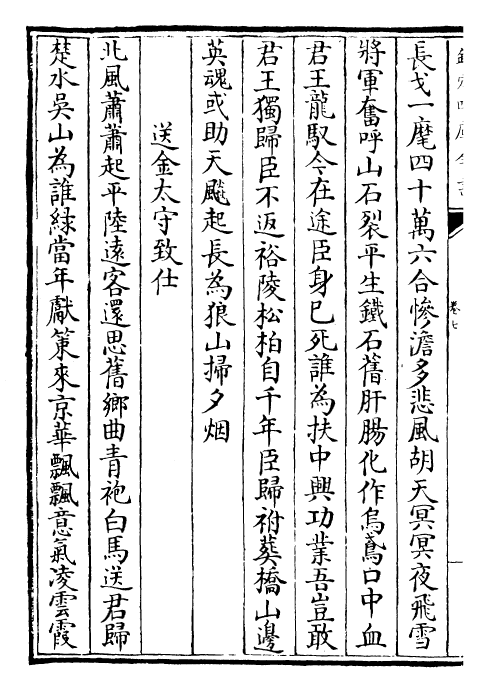 欽定四庫全書
卷七
長戈一麾四十萬六合慘澹多悲風胡天冥冥夜飛雪
將軍奮呼山石裂平生鐵石舊肝腸化作烏鳶口中血
君王龍馭今在途臣身已死誰為扶中興功業吾豈敢
君王獨歸臣不返裕陵松柏自千年臣歸祔葬橋山邊
英魂或助天飇起長為狼山掃夕烟
送金太守致仕
北風蕭蕭起平陸遠客還思舊鄉曲青袍白馬送君歸
楚水吳山為誰緑當年獻策來京華飄飄意氣凌雲霞